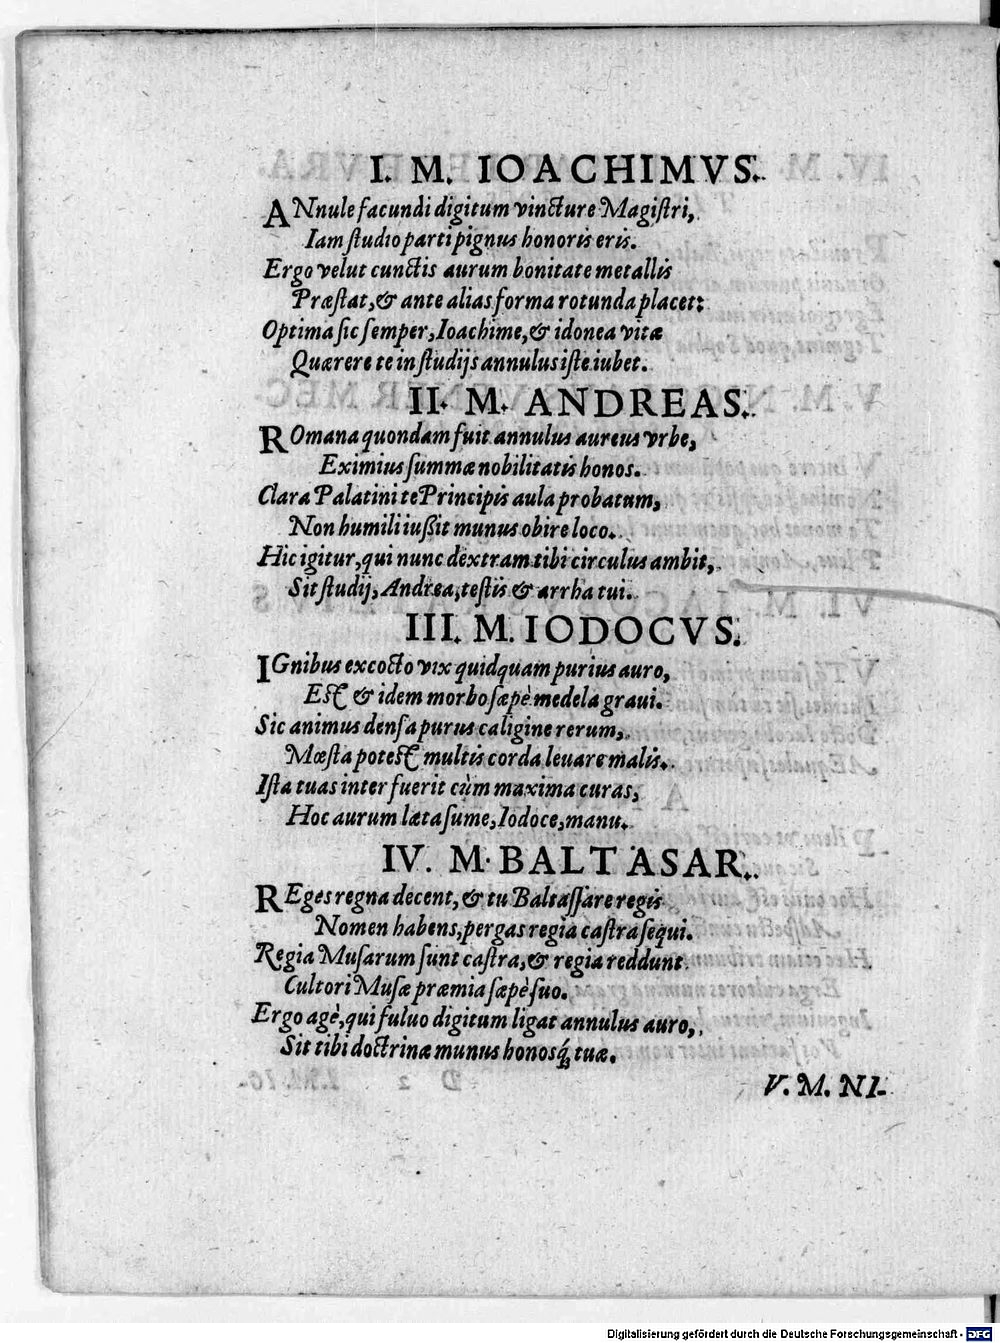 I. M. IOACHIMVS.
ANnule facundi digitum vincture Magistri,
Iam studio parti pignus honoris eris.
Ergo velut cunctis aurum bonitate metallis
Præstat, & ante alias forma rotunda placet:
Optima sic semper, Ioachime, & idonea vitæ
Quærere te in studijs annulus iste iubet.
II. M. ANDREAS.
ROmana quondam fuit annulus aureus vrbe,
Eximius summæ nobilitatis honos.
Clara Palatini te Principis aula probatum,
Non humili iußit munus obire loco.
Hic igitur, qui nunc dextram tibi circulus ambit,
Sit studij, Andrea, testis & arrha tui.
III. M. IODOCVS.
IGnibus excocto vix quidquam purius auro,
Est & idem morbo sæpè medela graui.
Sic animus densa purus caligine rerum,
Mœsta potest multis corda leuare malis.
Ista tuas inter fuerit cùm maxima curas,
Hoc aurum læta sume, Iodoce, manu.
IV. M. BALTASAR.
REges regna decent, & tu Baltassare regis
Nomen habens, pergas regia castra sequi.
Regia Musarum sunt castra, & regia reddunt
Cultori Musæ præmia sæpè suo.
Ergo agè, qui fuluo digitum ligat annulus auro,
Sit tibi doctrinæ munus honosq́; tuæ.
V. M. NI-
Digitalisierung gefördert durch die Deutsche Forschungsgemeinschaft - DFG